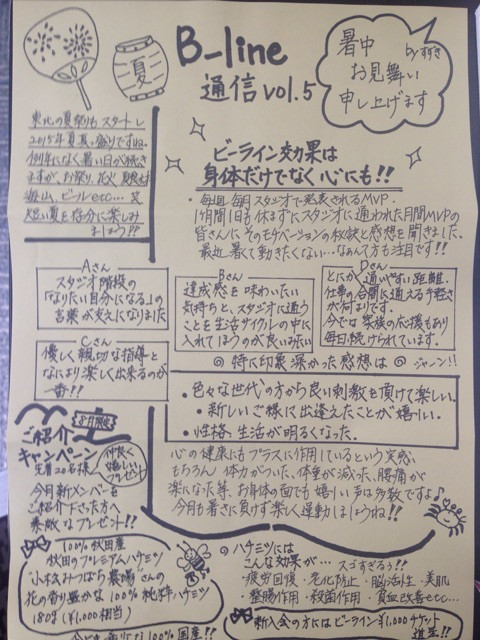 B-line
通信 vol.5
夏
暑中
お見舞い
申し上げます
by すずき
東北の夏祭りもスタートし
2015年夏真っ盛りですね。
例年になく暑い日が続き
ますが、お祭り、花火
海、山、ビールetc…笑
短い夏を存分に楽しみ
ましょう!!
ビーライン効果は
身体だけでなく心にも!!
・毎週毎月スタジオで発表されるMVP。
1ヶ月間1日も休まずにスタジオに通われた月間MVPの
皆さんにそのモチベーションの秘訣と感想を聞きました。
最近暑くて動きたくない…なぁんて方も注目です!!
Aさん
スタジオ階段の
「なりたい自分になる」の
言葉が支えになりました
Bさん
達成感を味わいたい
気持ちと、スタジオに通う
ことを生活サイクルの中に
入れてしまうのが良いみたい
Dさん
とにかく通いやすい距離。
仕事の合間に通える手軽さ
が何よりです。
今では家族の応援もあり
毎日続けられています。
Cさん
優しく親切な指導と
なにより楽しく出来るのが
一番!!
◎特に印象深かった感想は◎ ジャーン!!
・色々な世代の方から良い刺激を頂けて楽しい。
・新しいご様に出逢えたことが嬉しい。
・性格、生活が明るくなった。
心の健康にもプラスに作用しているという実感、
もちろん 体力がついた、体重が減った、腰痛が
楽になった等、お身体の面でも嬉しい声は多数ですよ♪
今月も暑さに負けず楽しく運動しましょうね!!
8月限定
ご紹介
キャンペーン
先着20名様
仲良く
嬉しい
プレゼント
今月新メンバーを
ご紹介下さった方へ
素敵なプレゼント!!
100%秋田産
秋田のプレミアムハチミツ
小松みつばち農場さんの
花の香り豊かな100%純粋ハチミツ
180g(¥1,000相当)
◎ハチミツには
こんな効果が… スゴすぎる!!
・疲労回復・老化防止・脳活性・美肌
・整腸作用・殺菌作用・貧血改善etc…
新入会の方にはビーライン¥1,000チケット
進呈!!
100%国産!!